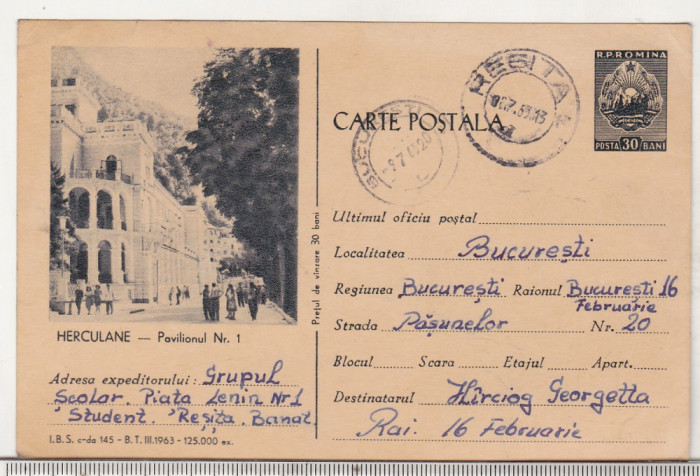 R.P.ROMINA
POSTA 30 BANI
REȘIȚA
BUCUREȘTI
CARTE POȘTALA
Prețul de vînzare 30 bani
HERCULANE — Pavilionul Nr. 1
Adresa expeditorului: Grupul
Școlar. Piața Lenin Nr 1
Student. Reșița. Banat.
I.B.S. c-da 145 - B.T. III.1963 - 125.000 ex.
Ultimul oficiu poștal
Localitatea București
Regiunea București Raionul București 16
Februarie
Strada Pășunelor Nr. 20
Blocul Scara Etajul Apart.
Destinatarul Hîrciog Georgetta
Rai. 16 Februarie